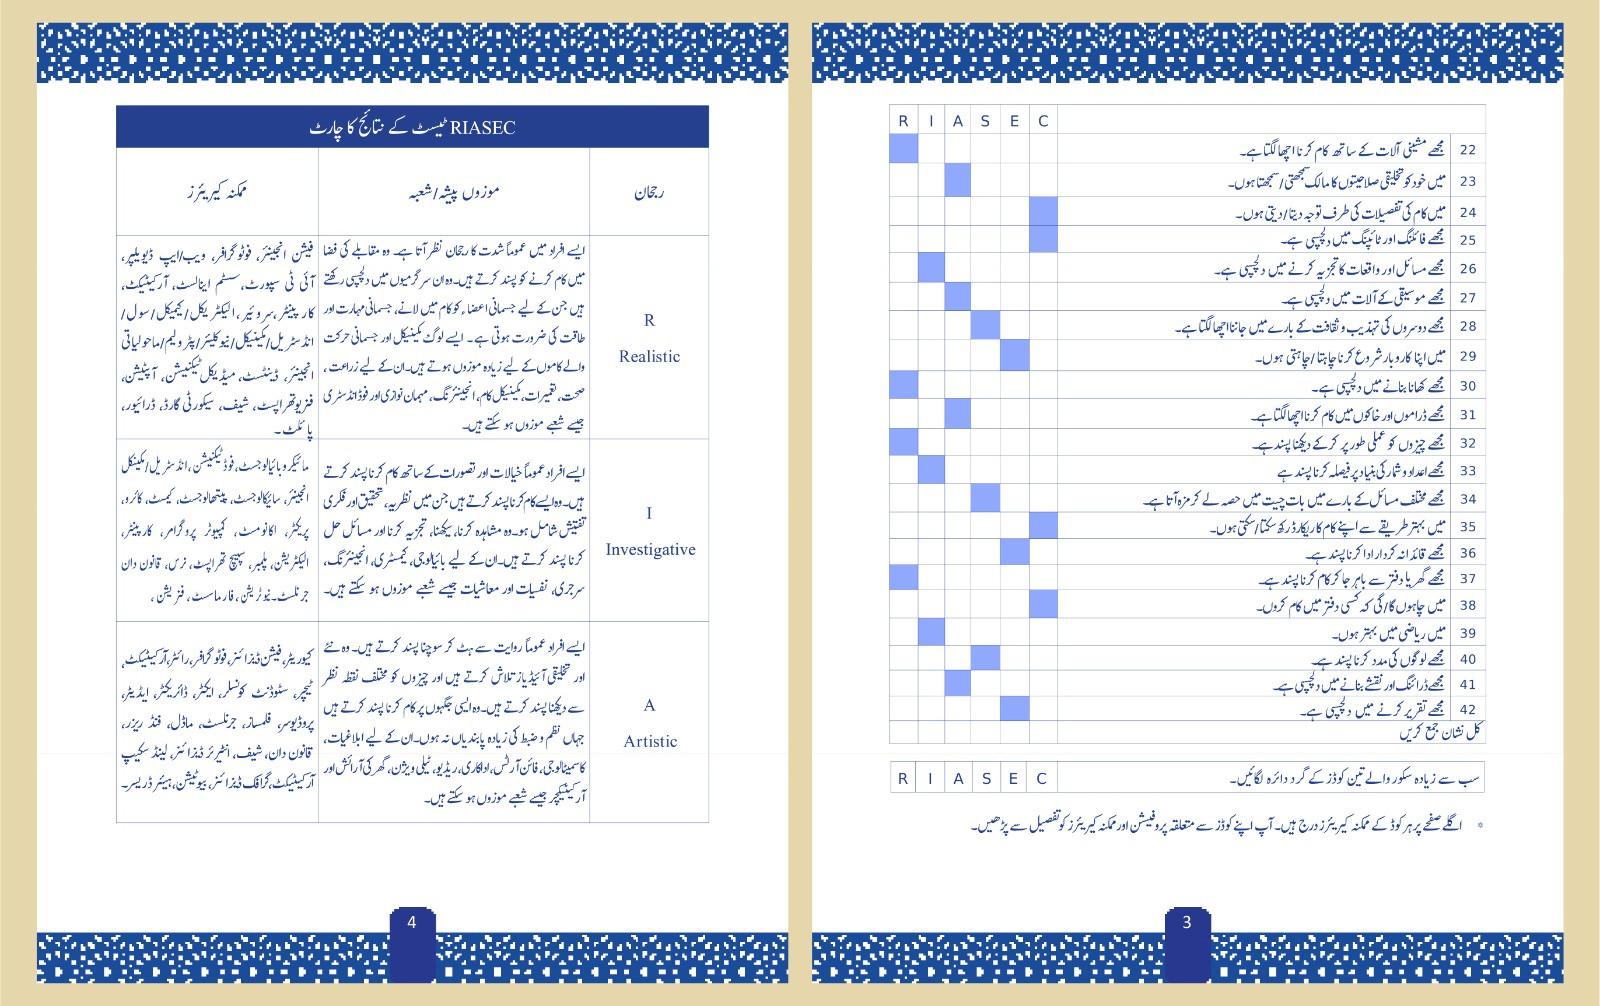 R I A S E C
22 مجھے مشینی آلات کے ساتھ کام کرنا اچھا لگتا ہے۔
23 میں خود کو تخلیقی صلاحیتوں کا مالک سمجھتی/سمجھتا ہوں۔
24 میں کام کی تفصیلات کی طرف توجہ دیتا/دیتی ہوں۔
25 مجھے فائلنگ اور ٹائپنگ میں دلچسپی ہے۔
26 مجھے مسائل اور واقعات کا تجزیہ کرنے میں دلچسپی ہے۔
27 مجھے موسیقی کے آلات میں دلچسپی ہے۔
28 مجھے دوسروں کی تہذیب و ثقافت کے بارے میں جاننا اچھا لگتا ہے۔
29 میں اپنا کاروبار شروع کرنا چاہتا/چاہتی ہوں۔
30 مجھے کھانا بنانے میں دلچسپی ہے۔
31 مجھے ڈراموں اور خاکوں میں کام کرنا اچھا لگتا ہے۔
32 مجھے چیزوں کو عملی طور پر کر کے دیکھنا پسند ہے۔
33 مجھے اعداد و شمار کی بنیاد پر فیصلہ کرنا پسند ہے
34 مجھے مختلف مسائل کے بارے میں بات چیت میں حصہ لے کر مزہ آتا ہے۔
35 میں بہتر طریقے سے اپنے کام کا ریکارڈ رکھ سکتا/سکتی ہوں۔
36 مجھے قائدانہ کردار ادا کرنا پسند ہے۔
37 مجھے گھر یا دفتر سے باہر جا کر کام کرنا پسند ہے۔
38 میں چاہوں گا/گی کہ کسی دفتر میں کام کروں۔
39 میں ریاضی میں بہتر ہوں۔
40 مجھے لوگوں کی مدد کرنا پسند ہے۔
41 مجھے ڈرائنگ اور نقشے بنانے میں دلچسپی ہے۔
42 مجھے تقریر کرنے میں دلچسپی ہے۔
کل نشان جمع کریں
سب سے زیادہ سکور والے تین کوڈز کے گرد دائرہ لگائیں۔
R I A S E C
* اگلے صفحے پر ہر کوڈ کے ممکنہ کیریئرز درج ہیں۔ آپ اپنے کوڈز سے متعلقہ پروفیشن اور ممکنہ کیریئرز کو تفصیل سے پڑھیں۔
3
RIASEC ٹیسٹ کے نتائج کا چارٹ
رجحان
موزوں پیشہ/شعبہ
ممکنہ کیریئرز
R
Realistic
ایسے افراد میں عموماً شدت کا رجحان نظر آتا ہے۔ وہ مقابلے کی فضا
میں کام کرنے کو پسند کرتے ہیں۔ وہ ان سرگرمیوں میں دلچسپی رکھتے
ہیں جن کے لیے جسمانی اعضاء کو کام میں لانے، جسمانی مہارت اور
طاقت کی ضرورت ہوتی ہے۔ ایسے لوگ مکینیکل اور جسمانی حرکت
والے کاموں کے لیے زیادہ موزوں ہوتے ہیں۔ ان کے لیے زراعت،
صحت، تعمیرات، مکینیکل کام، انجینئرنگ، مہمان نوازی اور فوڈ انڈسٹری
جیسے شعبے موزوں ہو سکتے ہیں۔
فیشن انجینئر، فوٹو گرافر، ویب/ایپ ڈیویلپر،
آئی ٹی سپورٹ، سسٹم اینالسٹ، آرکیٹیکٹ،
کارپینٹر، سروئیر، الیکٹریکل/کیمیکل/سول/
انڈسٹریل/مکینیکل/نیوکلیئر/پٹرولیم/ماحولیاتی
انجینئر، ڈینٹسٹ، میڈیکل ٹیکنیشن، آپٹیشن،
فزیوتھراپسٹ، شیف، سیکورٹی گارڈ، ڈرائیور،
پائلٹ۔
I
Investigative
ایسے افراد عموماً خیالات اور تصورات کے ساتھ کام کرنا پسند کرتے
ہیں۔ وہ ایسے کام کرنا پسند کرتے ہیں جن میں نظریہ، تحقیق اور فکری
تفتیش شامل ہو۔ وہ مشاہدہ کرنا، سیکھنا، تجزیہ کرنا اور مسائل حل
کرنا پسند کرتے ہیں۔ ان کے لیے بائیالوجی، کیمسٹری، انجینئرنگ،
سرجری، نفسیات اور معاشیات جیسے شعبے موزوں ہو سکتے ہیں۔
مائیکروبائیالوجسٹ، فوڈ ٹیکنیشن، انڈسٹریل/مکینکل
انجینئر، سائیکالوجسٹ، پیتھالوجسٹ، کیمسٹ، کائرو،
پریکٹر، اکانومسٹ، کمپیوٹر پروگرامر، کارپینٹر،
الیکٹریشن، پلمبر، سپیچ تھراپسٹ، نرس، قانون دان
جرنلسٹ۔ نیوٹریشن، فارماسسٹ، فزیشن،
A
Artistic
ایسے افراد عموماً روایت سے ہٹ کر سوچنا پسند کرتے ہیں۔ وہ نئے
اور تخلیقی آئیڈیاز تلاش کرتے ہیں اور چیزوں کو مختلف نقطہ نظر
سے دیکھنا پسند کرتے ہیں۔ وہ ایسی جگہوں پر کام کرنا پسند کرتے ہیں
جہاں نظم و ضبط کی زیادہ پابندیاں نہ ہوں۔ ان کے لیے ابلاغیات،
کاسمیٹالوجی، فائن آرٹس، اداکاری، ریڈیو، ٹیلی ویژن، گھر کی آرائش اور
آرکیٹیکچر جیسے شعبے موزوں ہو سکتے ہیں۔
کیوریٹر، فیشن ڈیزائنر، فوٹو گرافر، رائٹر، آرکیٹیکٹ،
ٹیچر، سٹوڈنٹ کونسلر، ایکٹر، ڈائریکٹر، ایڈیٹر،
پروڈیوسر، فلمساز، جرنلسٹ، ماڈل، فنڈ ریزر،
قانون دان، شیف، انٹیریئر ڈیزائنر، لینڈ سکیپ
آرکیٹیکٹ، گرافک ڈیزائنر، بیوٹیشن، ہیئر ڈریسر۔
4